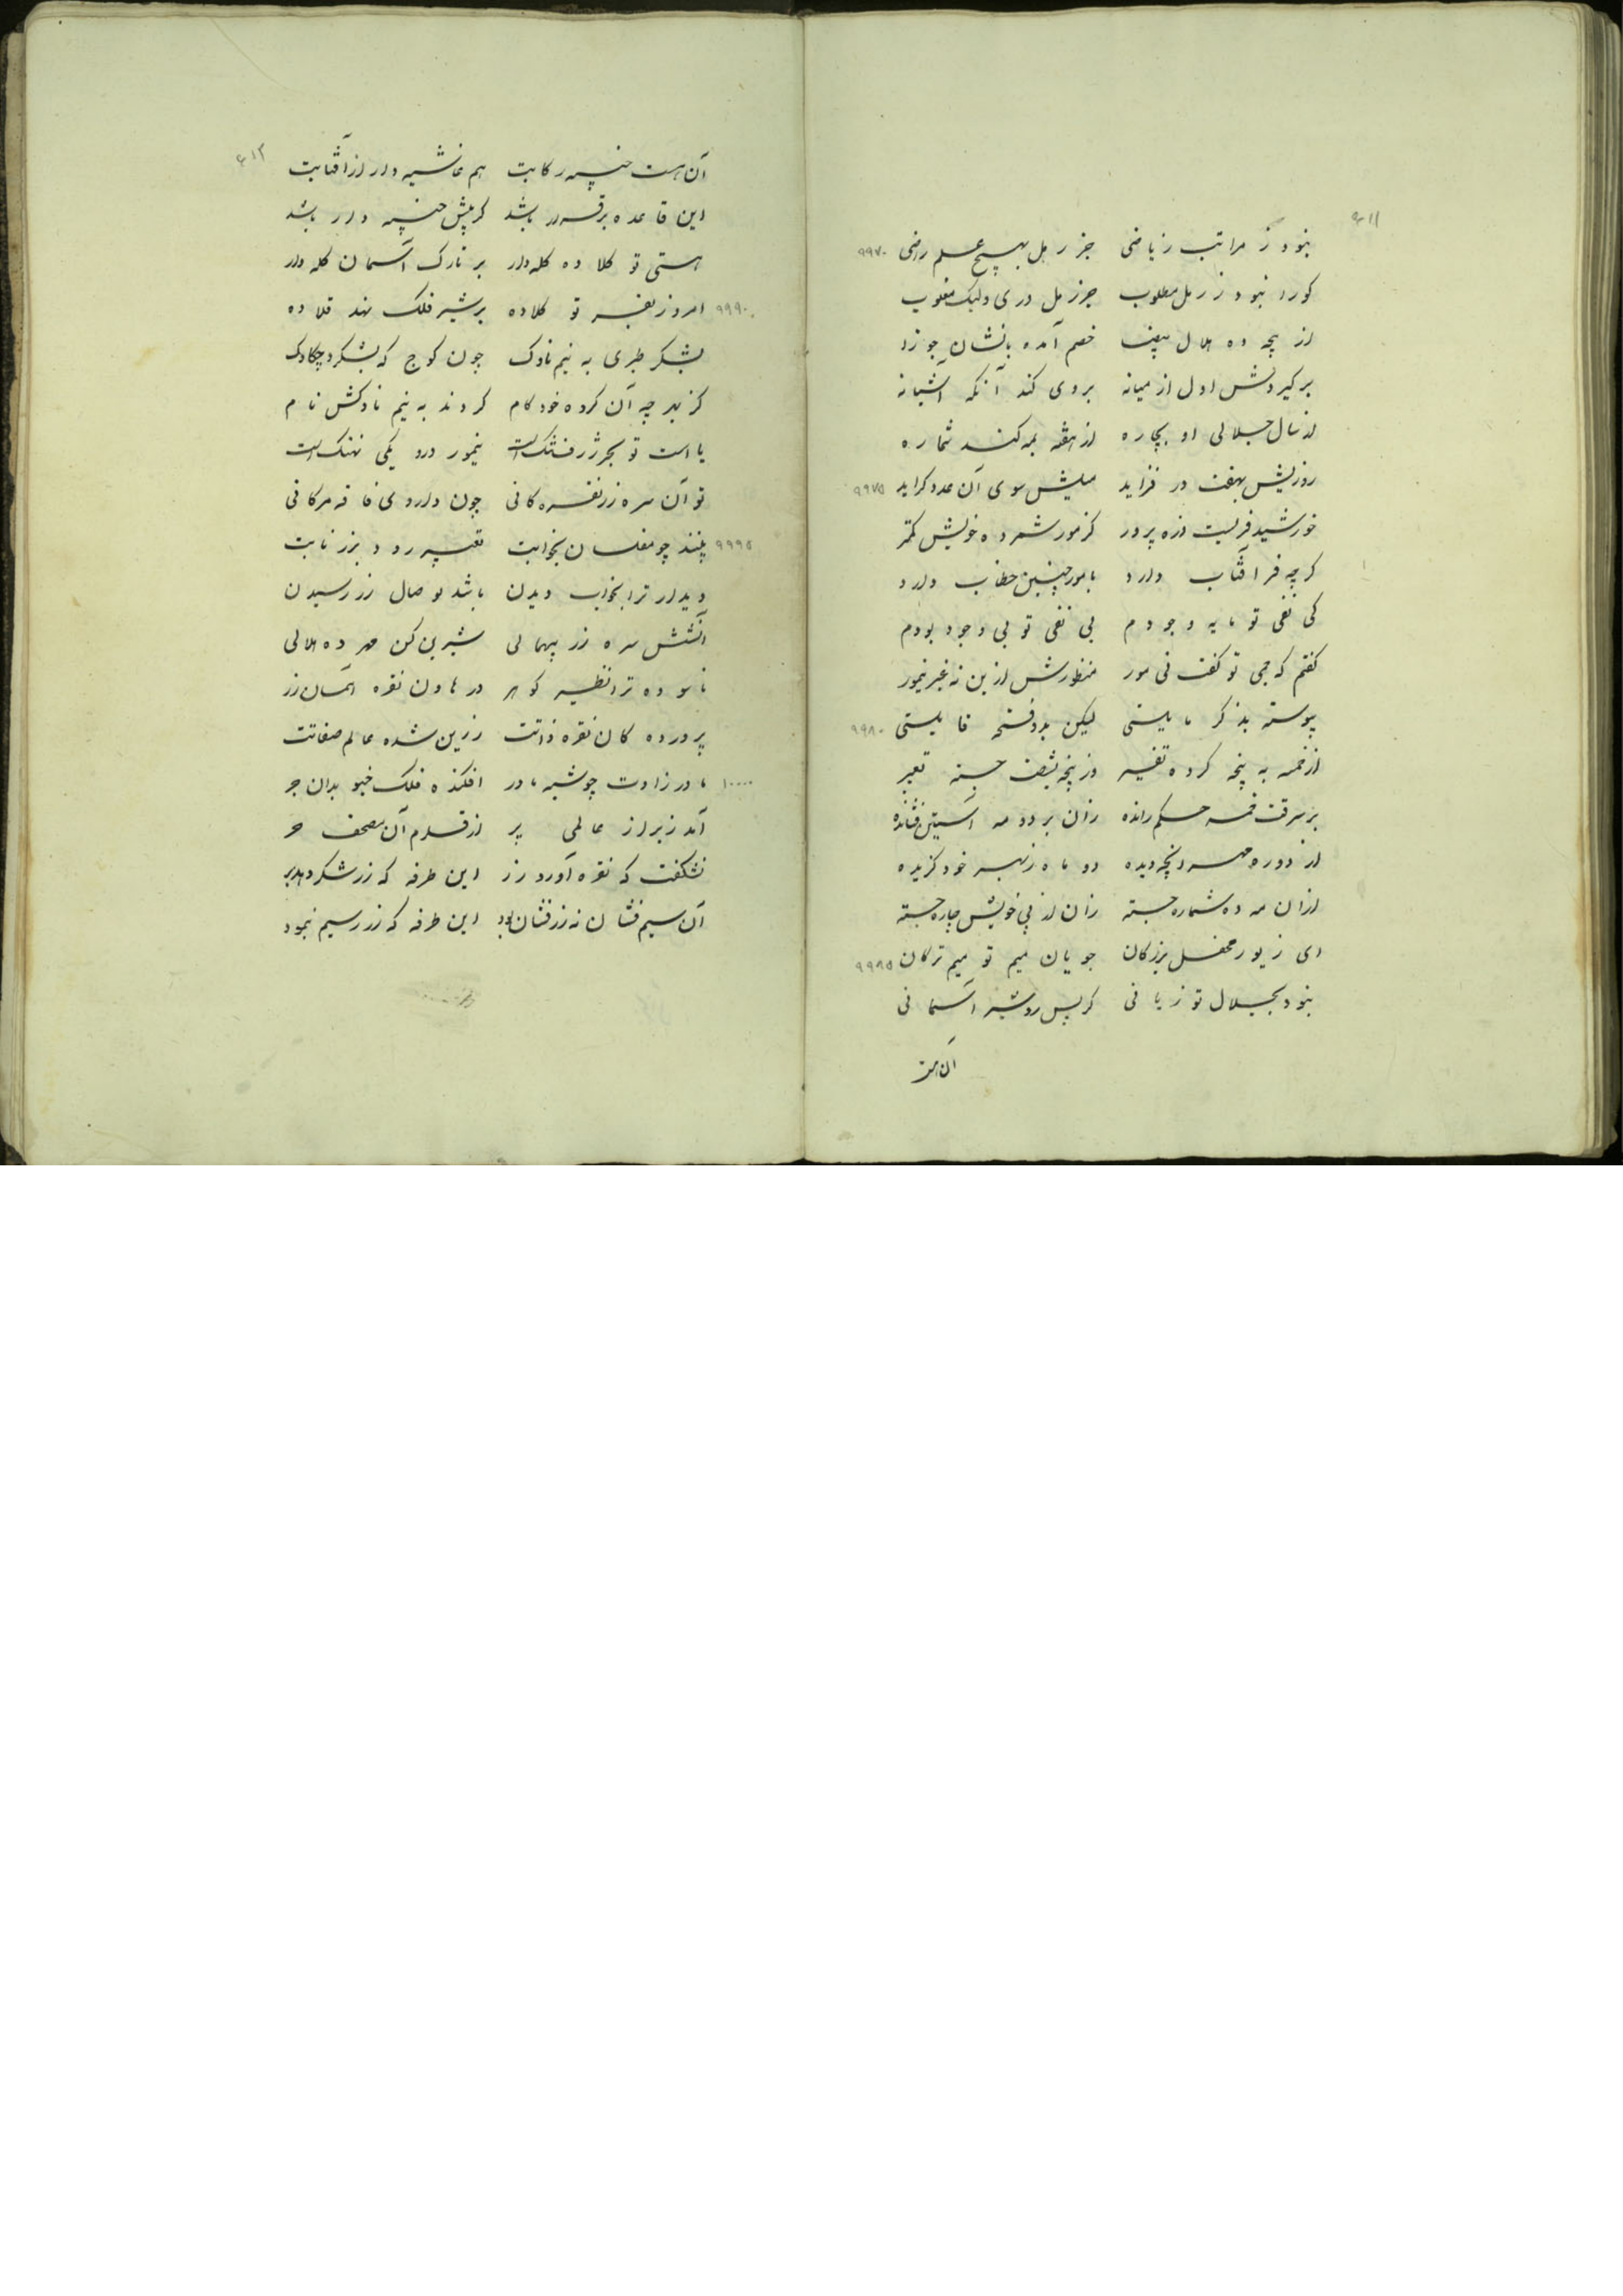 ۶۱۱
نبود ز مراتب ریاضی جز رمل بهیچ علم راضی ۹۹۷۰
کورا نبود ز رمل مطلوب جز رمل دری ولیک مقلوب
از بچه ده هلال خصم آمده بانشان جوزا
برگیردش اول از میانه بروی کند آنکه آشیانه
از سال جلالی او بچاره از هفته به کند شماره
روزیش بهفت در فزاید میلیش سوی آن عدد گراید ۹۹۷۵
خورشیدفریست ذره پرور کز مور شمرده خویش کمتر
گرچه فر آفتاب دارد با مور چنین خطاب دارد
کی نفی تو مایه وجودم بی نفی تو بی وجود بودم
گفتم که جمی تو گفت نی مور منظورش ازین نه غیر نیمور
پیوسته بذکر مایلستی لیکن بدو فتحه قایلستی ۹۹۸۰
از خمسه به پنجه کرده تفسیر وز پنجه بشصت جسته تعبیر
بر سرقت خمسه حکم رانده زان بر دو مه آستین فشانده
از دوره مهر و پنجه دیده دو ماه ز بهر خود گزیده
ازان مه ده شماره جسته زان از پی خویش چاره جسته
ای زیور محفل بزرگان جویان میم تو میم ترکان ۹۹۸۵
نبود بجلال تو زیانی گر پس رود شیر آسمانی
آن هست
۶۱۲
آن هست جنیبه رکابت هم غاشیه دار از آفتابت
این قاعده برقرار باشد کز پیش جنیبه دار باشد
هستی تو کلاده کله دار بر تارک آسمان کله دار
۹۹۹۰ امروز بغیر تو کلاده بر شیر فلک نهد قلاده
بشکر طبری به نیم ناوک چون کوچ که بشکرد چکاوک
کز هر چه آن کرده خودکام کردند به نیم ناوکش نام
یا است تو بحر ژرف تنک است نیمور درو یکی نهنک است
تو آن سره زر نقره کانی چون داروی فاقه مرکانی
۹۹۹۵ بینند چو مفلسان بخوابت تعبیر رود بزر نابت
دیدار ترا بخواب دیدن باشد بوصال زر رسیدن
آتشش سره زر پیهمالی شیرین کن مهر ده هلالی
ناسوده ترا نظیر گوهر در هاون نقره آسمان زر
پرورده کان نقره ذاتت زرین شده عالم صفاتت
۱۰۰۰۰ مادر زادت چو شیر مادر افکنده فلک خیو بدان جر
آمد زبر از عالمی پر از قلزم آن مصحف حر
نشکفت که نقره آورد زر این طرفه که زر شکرد هژبر
آن سیم فشان نه زر فشان بود این طرفه که زر ز سیم نمود